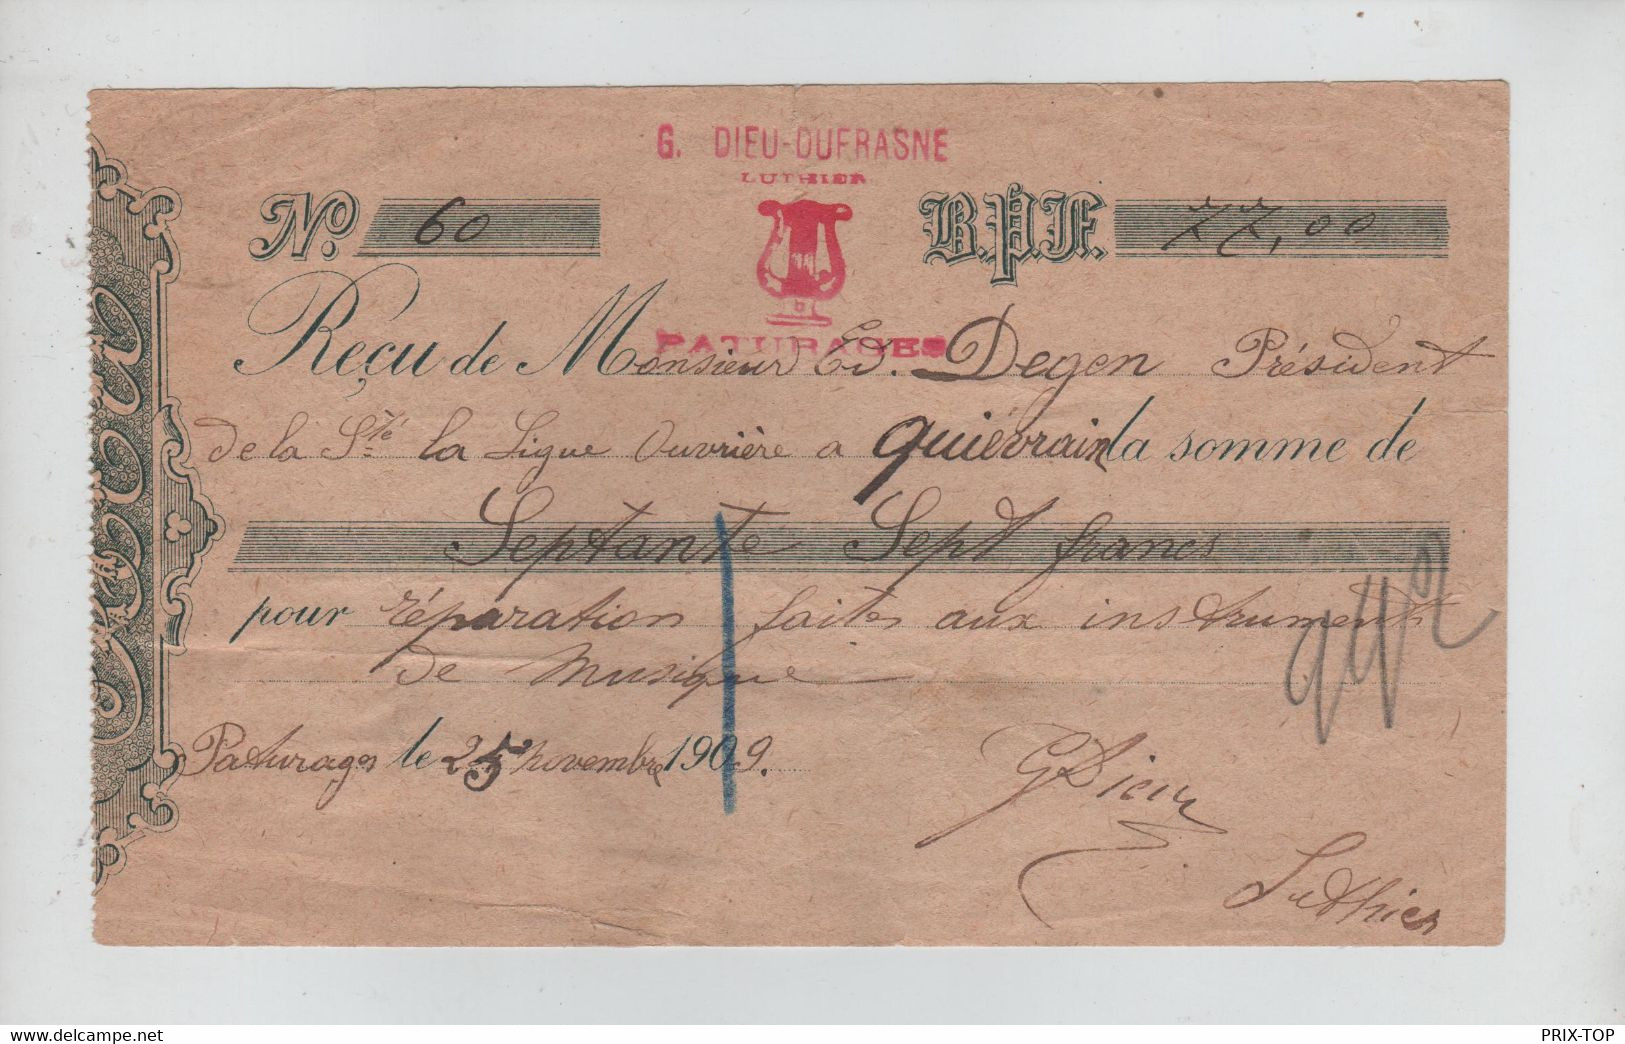 G. DIEU-DUFRASNE
LUTHIER
No. 60 B.P.F. 77,00
PATURAGES
Reçu de Monsieur Ed. Degen Président
de la Sté la Ligue Ouvrière a Quiévrain la somme de
Septante Sept francs
pour réparation faites aux instruments
de musique
Paturages le 25 novembre 1909.
942
G Dieu
Luthier
www.delcampe.net
PRIX-TOP